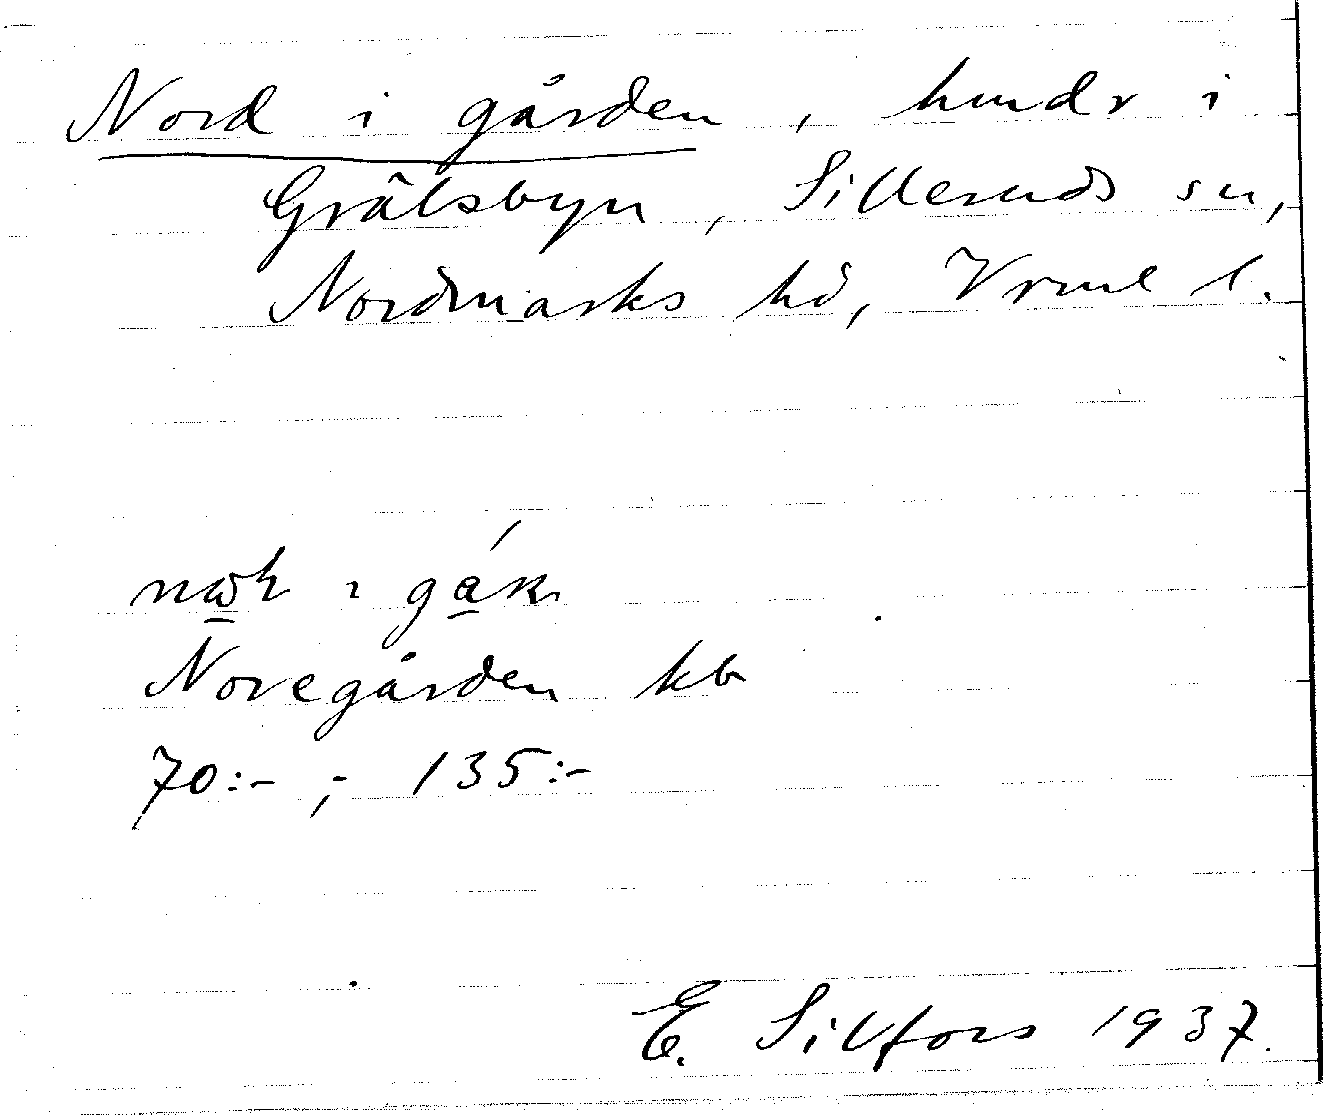 Nord i gården, hmdr i
Grålsbyn, Silleruds sn,
Nordmarks hd, Vrml l.
ı
Noregården kb
70:- ; 135:-
E. Silfors 1937.